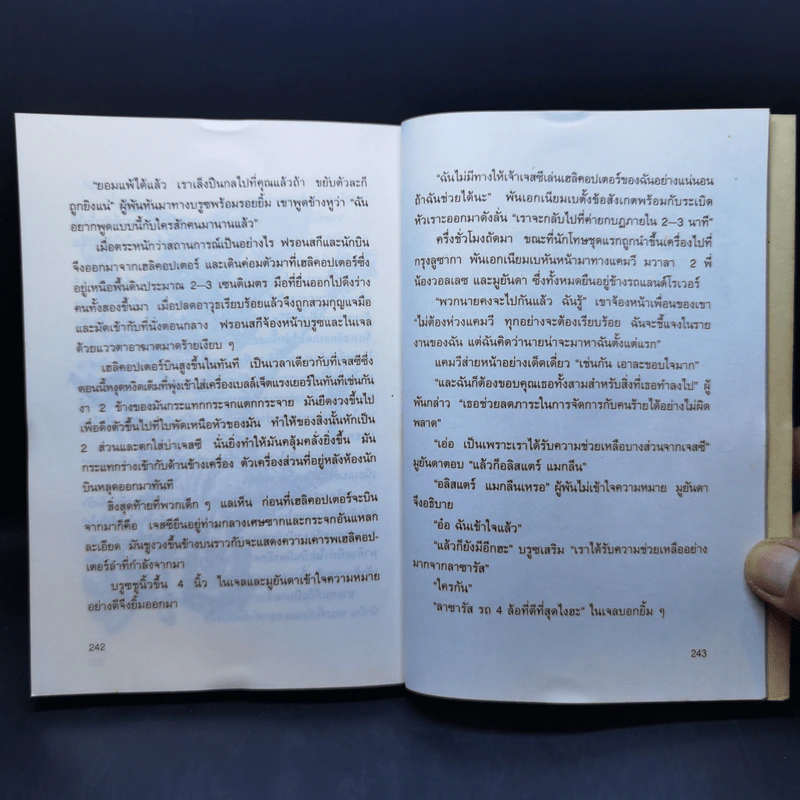 "ยอมแพ้ได้แล้ว เราเล็งปืนกลไปที่คุณแล้วถ้า ขยับตัวละก็
ถูกยิงแน่" ผู้พันหันมาทางบรูซพร้อมรอยยิ้ม เขาพูดข้างหูว่า "ฉัน
อยากพูดแบบนี้กับใครสักคนมานานแล้ว"
เมื่อตระหนักว่าสถานการณ์เป็นอย่างไร ฟรอนสกีและนักบิน
จึงออกมาจากเฮลิคอปเตอร์ และเดินค่อมตัวมาที่เฮลิคอปเตอร์ซึ่ง
อยู่เหนือพื้นดินประมาณ 2–3 เซนติเมตร มือที่ยื่นออกไปดึงร่าง
คนทั้งสองขึ้นมา เมื่อปลดอาวุธเรียบร้อยแล้วจึงถูกสวมกุญแจมือ
และมัดเข้ากับที่นั่งตอนกลาง ฟรอนสกีจ้องหน้าบรูซและไนเจล
ด้วยแววตาอาฆาตมาดร้ายเงียบ ๆ
เฮลิคอปเตอร์บินสูงขึ้นในทันที เป็นเวลาเดียวกับที่เจสซีซึ่ง
ตอนนี้หงุดหงิดเต็มที่พุ่งเข้าใส่เครื่องเบลล์เจ็ตแรงเยอร์ในทันทีเช่นกัน
งา 2 ข้างของมันกระแทกกระจกแตกกระจาย มันยืดงวงขึ้นไป
เพื่อดึงตัวขึ้นไปที่ใบพัดเหนือหัวของมัน ทำให้ของสิ่งนั้นหักเป็น
2 ส่วนและตกใส่บ่าเจสซี นั่นยิ่งทำให้มันคลุ้มคลั่งยิ่งขึ้น มัน
กระแทกร่างเข้ากับด้านข้างเครื่อง ตัวเครื่องส่วนที่อยู่หลังห้องนัก
บินหลุดออกมาทันที
สิ่งสุดท้ายที่พวกเด็ก ๆ แลเห็น ก่อนที่เฮลิคอปเตอร์จะบิน
จากมาก็คือ เจสซียืนอยู่ท่ามกลางเศษซากและกระจกอันแหลก
ละเอียด มันชูงวงขึ้นข้างบนราวกับจะแสดงความเคารพเฮลิคอป-
เตอร์ลำที่กำลังจากมา
บรูซชูนิ้วขึ้น 4 นิ้ว ไนเจลและมูยันดาเข้าใจความหมาย
อย่างดีจึงยิ้มออกมา
242
"ฉันไม่มีทางให้เจ้าเจสซีเล่นเฮลิคอปเตอร์ของฉันอย่างแน่นอน
ถ้าฉันช่วยได้นะ" พันเอกเนียมเบตั้งข้อสังเกตพร้อมกับระเบิด
หัวเราะออกมาดังลั่น "เราจะกลับไปที่ค่ายกบฎภายใน 2–3 นาที"
ครึ่งชั่วโมงถัดมา ขณะที่นักโทษชุดแรกถูกนำขึ้นเครื่องไปที่
กรุงลูซากา พันเอกเนียมเบหันหน้ามาทางแคมวี มวาลา 2 พี่
น้องวอลเลซ และมูยันดา ซึ่งทั้งหมดยืนอยู่ข้างรถแลนด์โรเวอร์
"พวกนายคงจะไปกันแล้ว ฉันรู้" เขาจ้องหน้าเพื่อนของเขา
"ไม่ต้องห่วงแคมวี ทุกอย่างจะต้องเรียบร้อย ฉันจะชี้แจงในราย
งานของฉัน แต่ฉันคิดว่านายน่าจะมาหาฉันตั้งแต่แรก"
แคมวีส่ายหน้าอย่างเด็ดเดี่ยว "เช่นกัน เอาละขอบใจมาก"
"และฉันก็ต้องขอบคุณเธอทั้งสามสำหรับสิ่งที่เธอทำลงไป" ผู้
พันกล่าว "เธอช่วยลดภาระในการจัดการกับคนร้ายได้อย่างไม่ผิด
พลาด"
"เอ่อ เป็นเพราะเราได้รับความช่วยเหลือบางส่วนจากเจสซี"
มูยันดาตอบ "แล้วก็อลิสแตร์ แมกลีน"
"อลิสแตร์ แมกลีนเหรอ" ผู้พันไม่เข้าใจความหมาย มูยันดา
จึงอธิบาย
"อ้อ ฉันเข้าใจแล้ว"
"แล้วก็ยังมีอีกฮะ" บรูซเสริม "เราได้รับความช่วยเหลืออย่าง
มากจากลาซารัส"
"ใครกัน"
"ลาซารัส รถ 4 ล้อที่ดีที่สุดไงฮะ" ไนเจลบอกยิ้ม ๆ
243